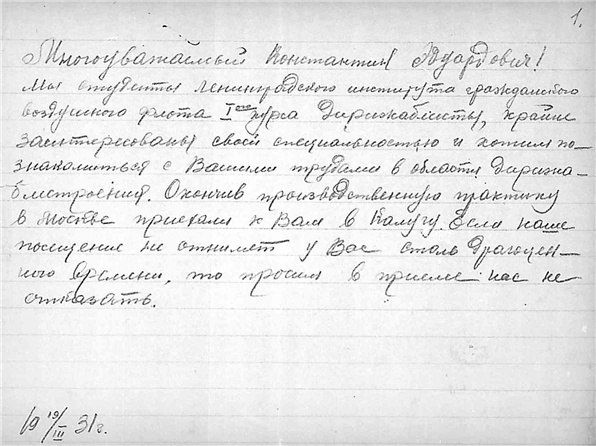 1.
Многоуважаемый Константин Эдуардович!
Мы студенты Ленинградского института гражданского
воздушного флота I ого курса Дирижаблисты, крайне
заинтересованы своей специальностью и хотим по-
знакомиться с Вашими трудами в области Дирижа-
блестроения. Окончив производственную практику
в Москве приехали к Вам в Калугу. Если наше
посещение не отнимет у Вас столь драгоцен-
ного времени, то просим в приеме нас не
отказать.
19/III 31г.